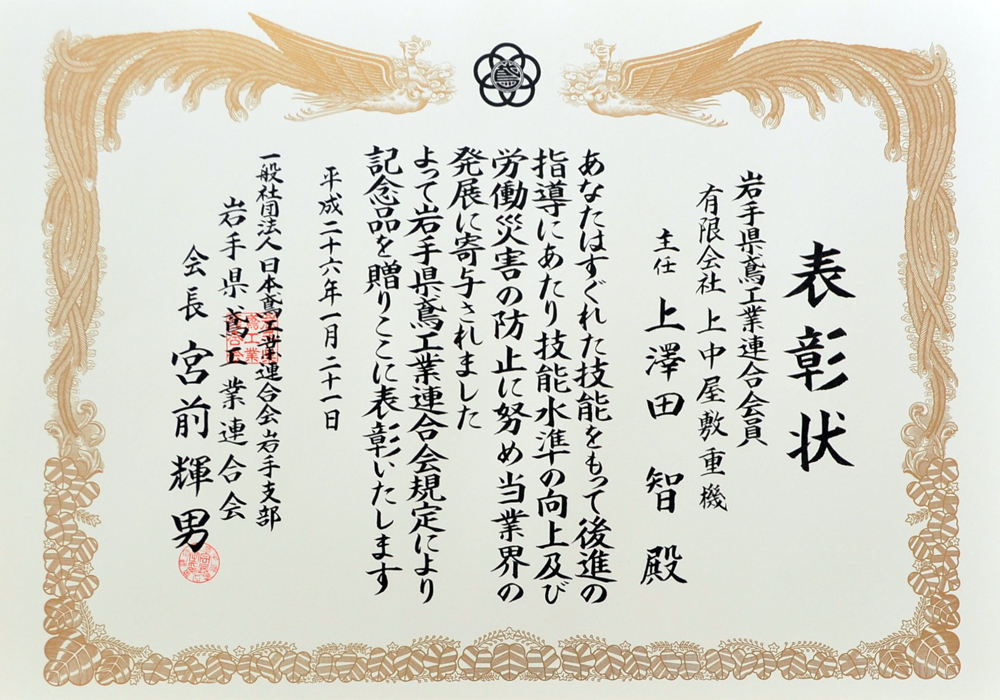 表彰状
岩手県鳶工業連合会会員
有限会社 上中屋敷重機
主任 上澤田 智 殿
あなたはすぐれた技能をもって後進の
指導にあたり技能水準の向上及び
労働災害の防止に努め当業界の
発展に寄与されました
よって岩手県鳶工業連合会規定により
記念品を贈りここに表彰いたします
平成二十六年一月二十一日
一般社団法人日本鳶工業連合会岩手支部
岩手県鳶工業連合会
会長 宮前輝男